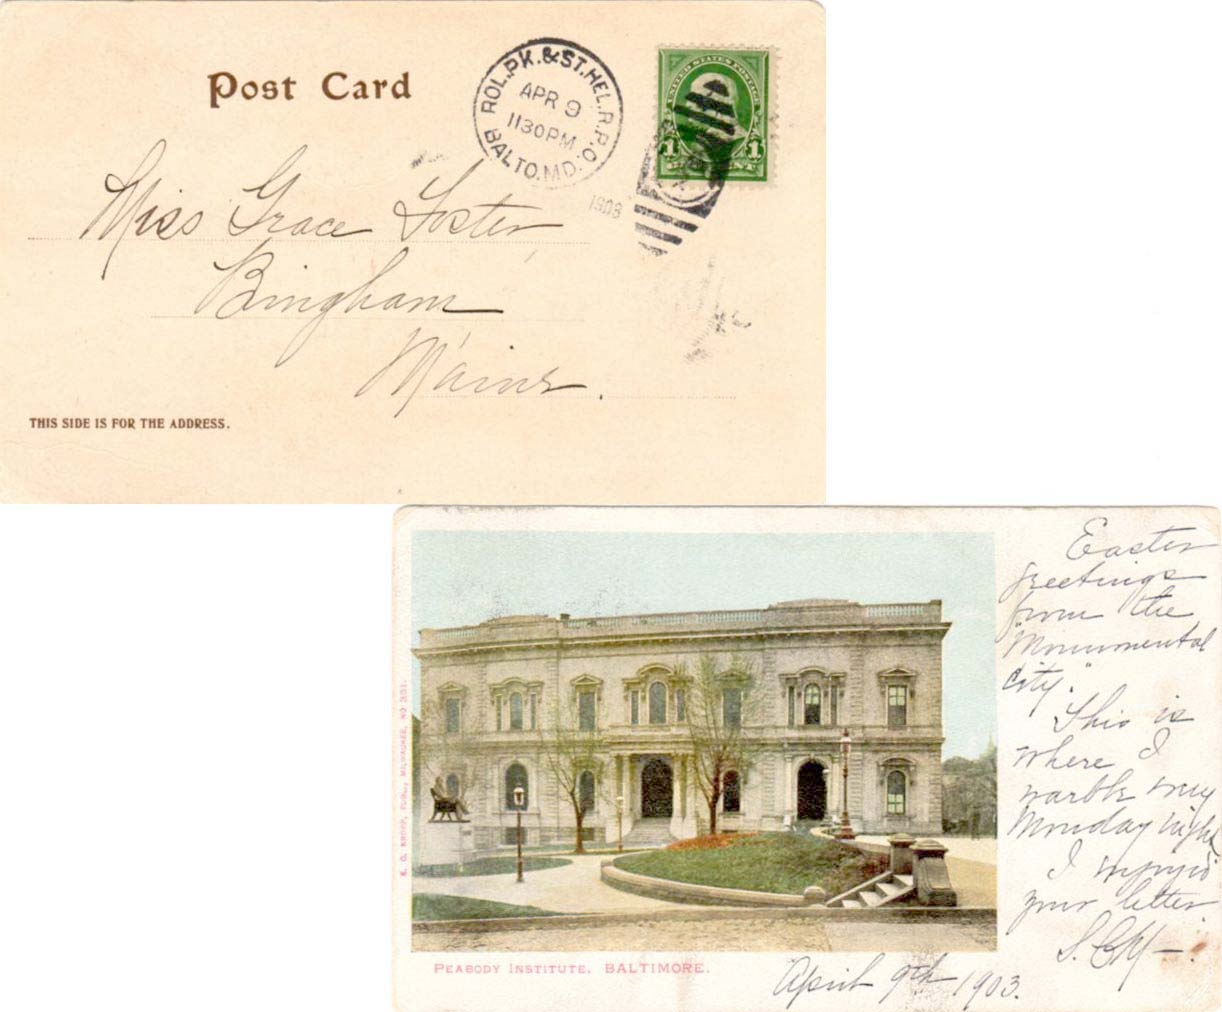 Post Card
ROL.PK.&ST.HEL.R.P.O.
APR 9
1130PM
BALTO.MD.
1903
UNITED STATES POSTAGE
1 1
Miss Grace Foster,
Bingham
Maine.
THIS SIDE IS FOR THE ADDRESS.
Easter
greetings
from the
"Monumental
city."
This is
where I
warble my
Monday night
I enjoyed
your letter.
April 9th 1903.
PEABODY INSTITUTE, BALTIMORE.
E. C. KROPP, PUBL., MILWAUKEE, NO 351.